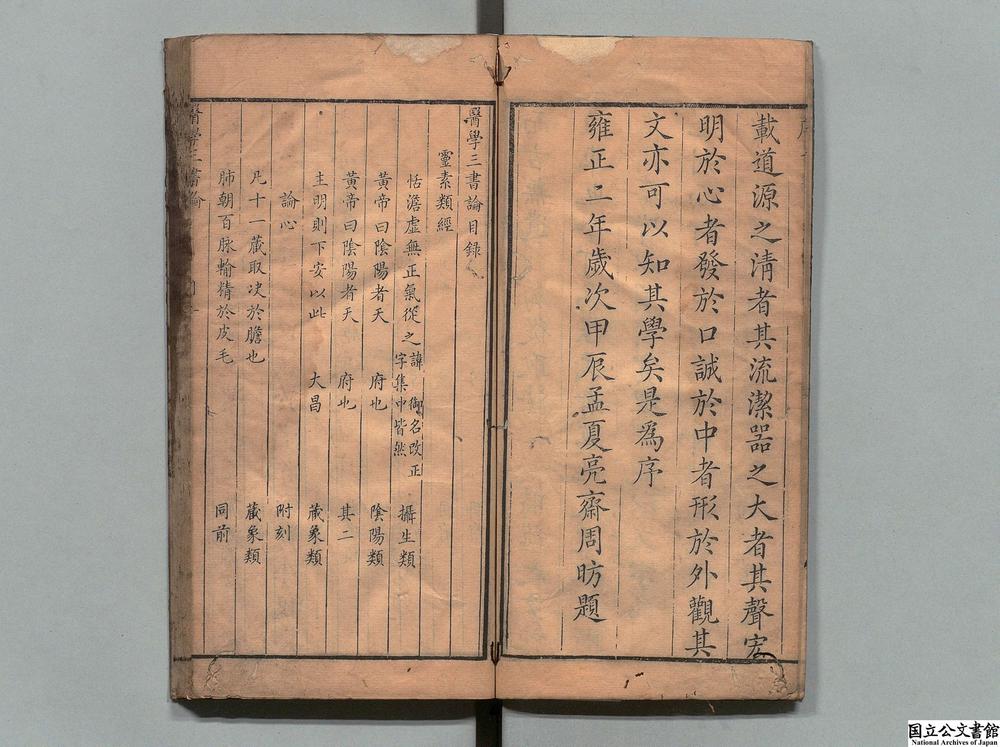 載道源之淸者其流潔器之大者其聲宏
明於心者發於口誠於中者形於外觀其
文亦可以知其學矣是爲序
雍正二年歲次甲辰孟夏亮齋周昉題
醫學三書論目錄
靈素類經
恬澹虛無正氣從之諱御名改正字集中皆然 攝生類
黃帝曰陰陽者天 府也 陰陽類
黃帝曰陰陽者天 府也 其二
主明則下安以此 大昌 藏象類
論心 附刻
凡十一藏取决於膽也 藏象類
肺朝百脉輸精於皮毛 同前
醫學三書論
国立公文書館
National Archives of Japan